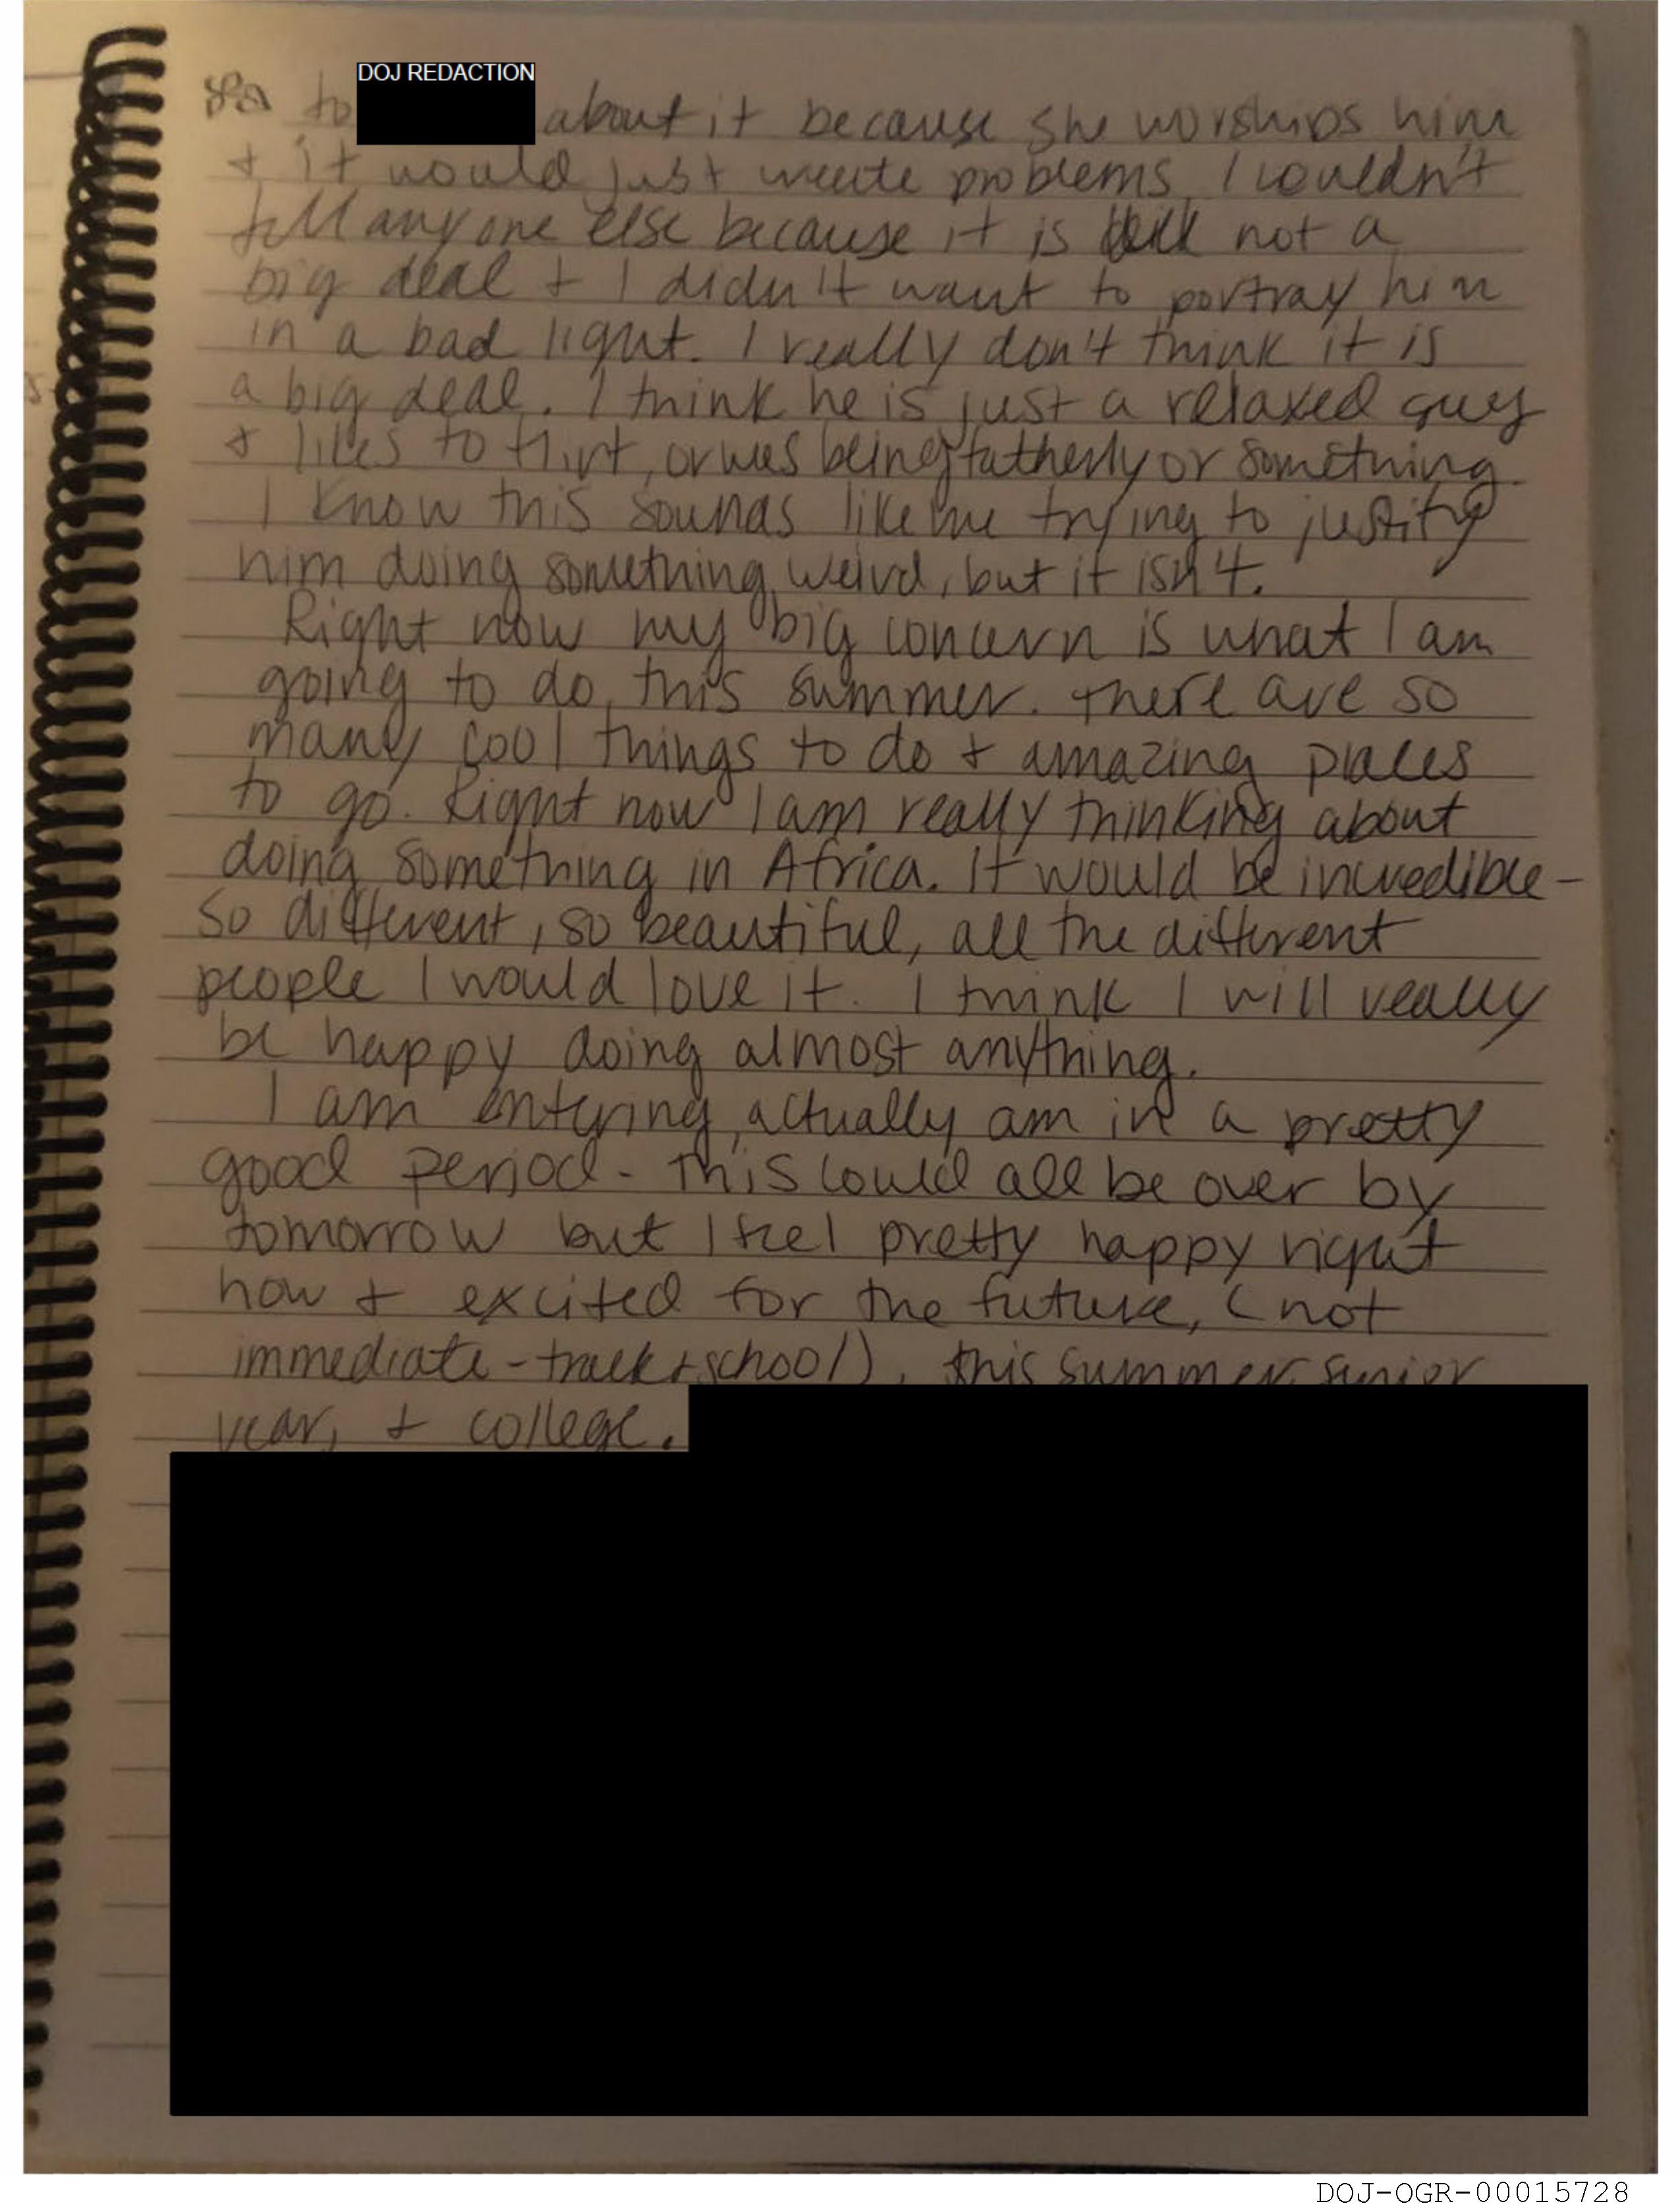 DOJ REDACTION
to about it because she worships him
+ it would just create problems. I couldn't
tell anyone else because it is not a
big deal + I didn't want to portray him
in a bad light. I really don't think it is
a big deal. I think he is just a relaxed guy
+ likes to flirt, or was being fatherly or something.
I know this sounds like me trying to justify
him doing something weird, but it isn't.
Right now my big concern is what I am
going to do this summer. There are so
many cool things to do + amazing places
to go. Right now I am really thinking about
doing something in Africa. It would be incredible -
so different, so beautiful, all the different
people I would love it. I think I will really
be happy doing almost anything.
I am entering, actually am in a pretty
good period - this could all be over by
tomorrow but I feel pretty happy right
now + excited for the future, (not
immediate - track + school), this summer, senior
year, + college.
DOJ-OGR-00015728